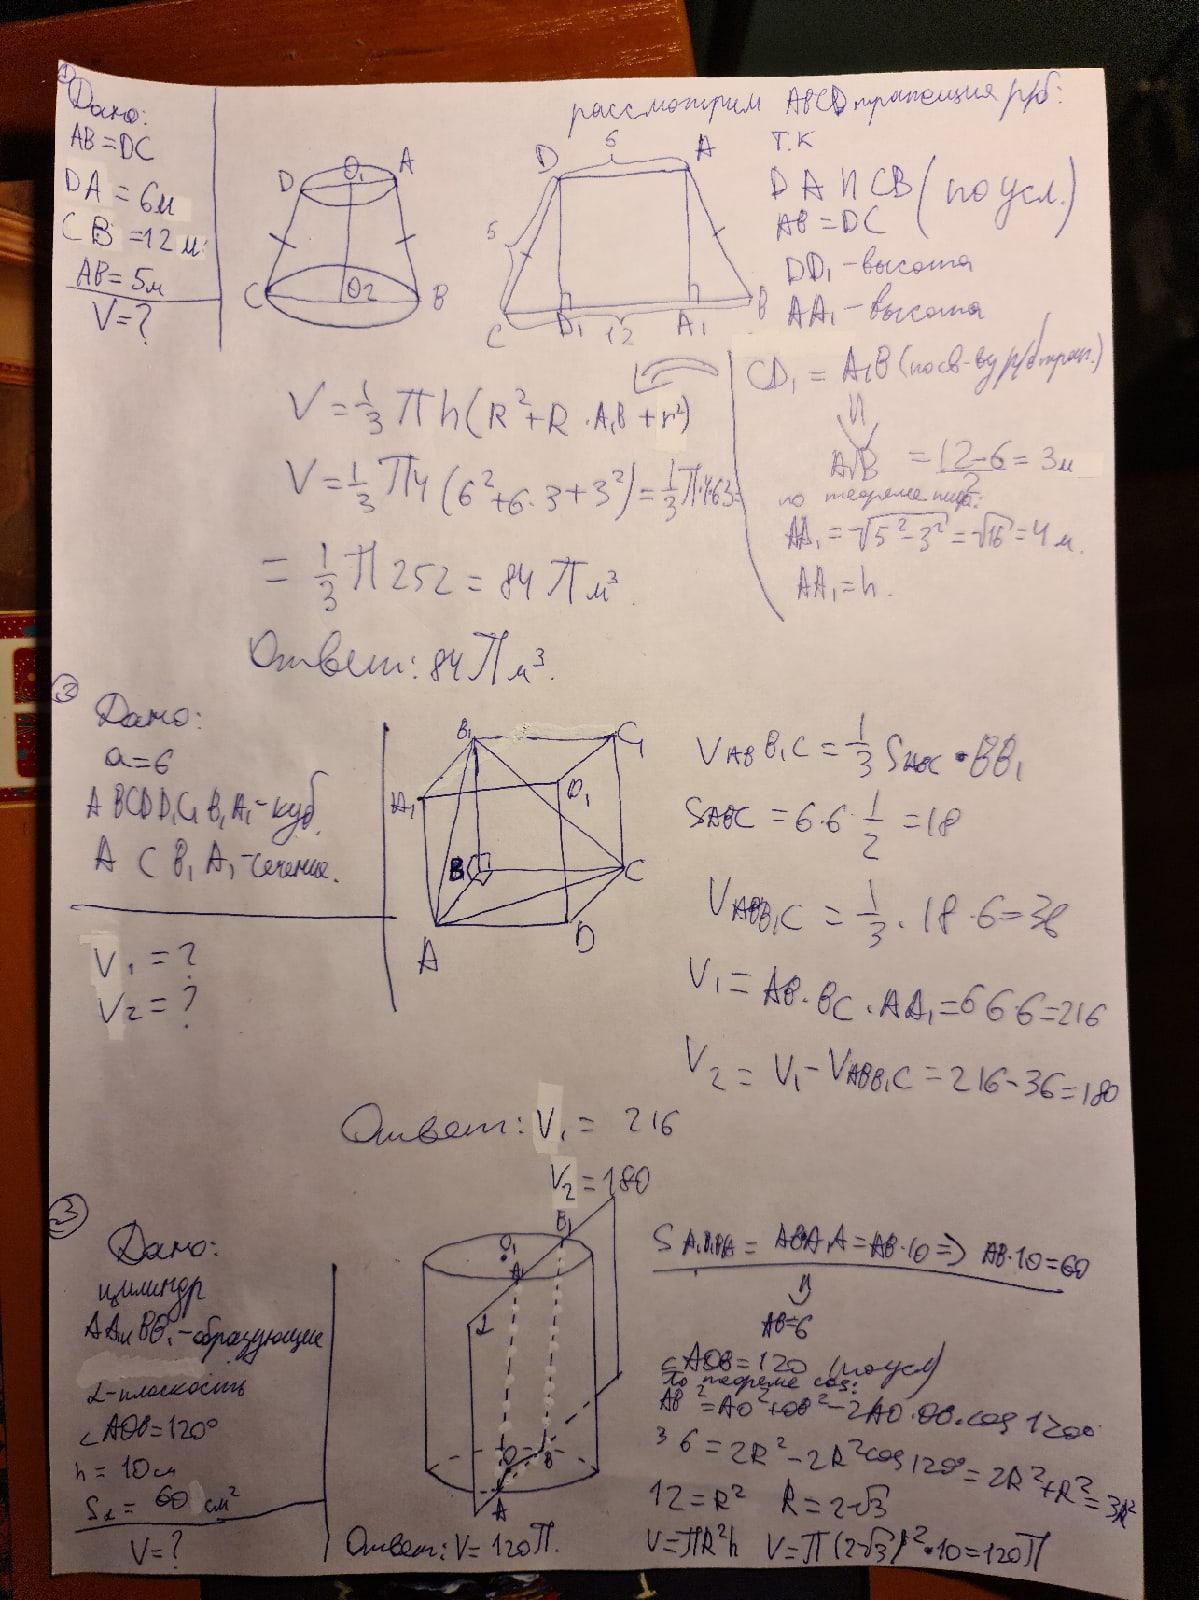 1
Дано:
AB = DC
DA = 6м
CB = 12м
AB = 5м
V = ?
D O₁ A
C O₂ B
рассмотрим ABCD трапеция р/б:
т.к
DA ∥ CB (по усл.)
AB = DC
DD₁ - высота
AA₁ - высота
6
D A
5
C D₁ 12 A₁ B
CD₁ = A₁B (по св-ву р/б трап.)
A₁B = (12-6)/2 = 3м
по теореме пиф.:
AA₁ = √5²-3² = √16 = 4м.
AA₁ = h.
V = 1/3 πh (R² + R · A₁B + r²)
V = 1/3 π4 (6² + 6·3 + 3²) = 1/3 π·4·63 =
= 1/3 π 252 = 84 π м³
Ответ: 84 π м³.
3
Дано:
a = 6
ABCDD₁C₁B₁A₁ - куб.
A C B₁ A₁ - сечение.
V₁ = ?
V₂ = ?
B₁ C₁
A₁ D₁
B C
A D
V ABB₁C = 1/3 S ABC · BB₁
S ABC = 6·6·1/2 = 18
V ABB₁C = 1/3 · 18 · 6 = 36
V₁ = AB · BC · AA₁ = 6·6·6 = 216
V₂ = V₁ - V ABB₁C = 216 - 36 = 180
Ответ: V₁ = 216
V₂ = 180
3
Дано:
цилиндр
AA₁ и BB₁ - образующие
α - плоскость
∠AOB = 120°
h = 10 см
Sα = 60 см²
V = ?
O₁ B₁
A₁
α
O B
A
= AB·10 ⇒ AB·10 = 60
⇓
AB = 6
∠AOB = 120 (по усл)
По теореме cos:
AB² = AO² + OB² - 2AO · OB · cos 120°
36 = 2R² - 2R² cos 120° = 2R² + R² = 3R²
12 = R² R = 2√3
V = πR²h V = π(2√3)² · 10 = 120π
Ответ: V = 120π.